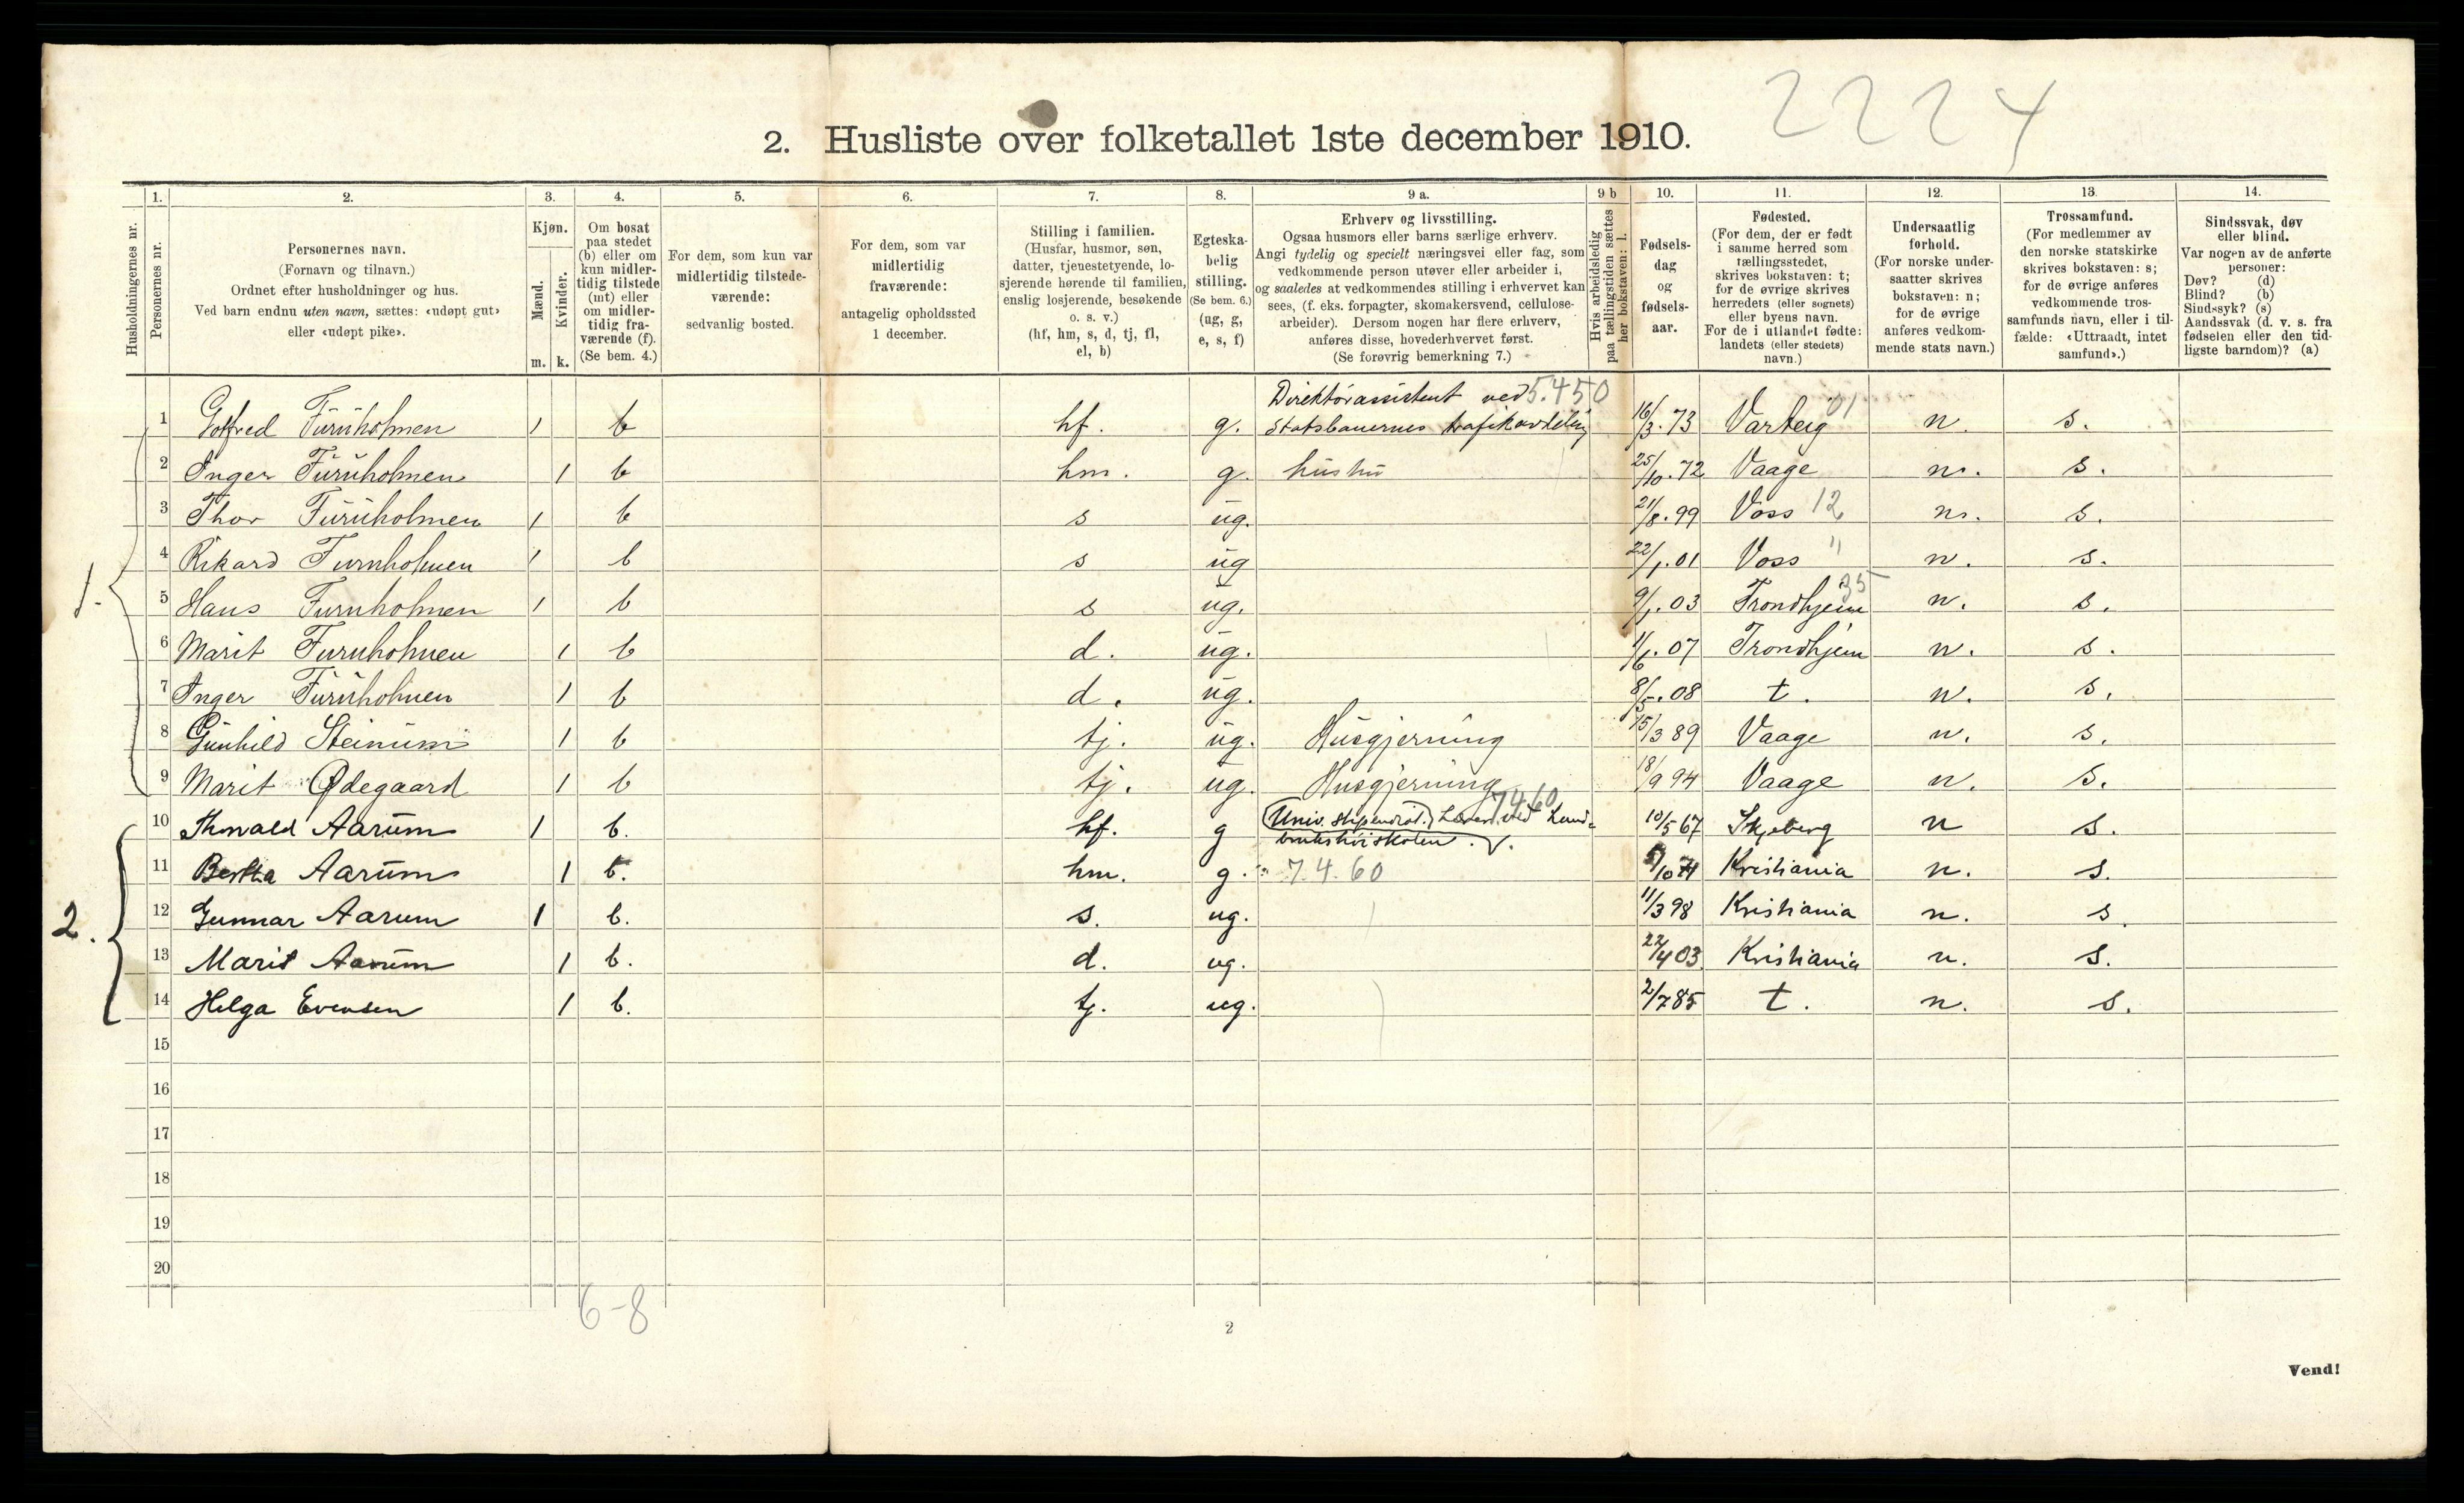 2224
2. Husliste over folketallet 1ste december 1910.
1. 2. 3. 4. 5. 6. 7. 8. 9 a. 9 b 10. 11. 12. 13. 14.
Husholdningernes nr.
Personernes nr.
Personernes navn.
(Fornavn og tilnavn.)
Ordnet efter husholdninger og hus.
Ved barn endnu uten navn, sættes: «udøpt gut»
eller «udøpt pike».
Kjøn.
Mænd.
m.
Kvinder.
k.
Om bosat
paa stedet
(b) eller om
kun midler-
tidig tilstede
(mt) eller
om midler-
tidig fra-
værende (f).
(Se bem. 4.)
For dem, som kun var
midlertidig tilstede-
værende:
sedvanlig bosted.
For dem, som var
midlertidig
fraværende:
antagelig opholdssted
1 december.
Stilling i familien.
(Husfar, husmor, søn,
datter, tjenestetyende, lo-
sjerende hørende til familien,
enslig losjerende, besøkende
o. s. v.)
(hf, hm, s, d, tj, fl,
el, b)
Egteska-
belig
stilling.
(Se bem. 6.)
(ug, g,
e, s, f)
Erhverv og livsstilling.
Ogsaa husmors eller barns særlige erhverv.
Angi tydelig og specielt næringsvei eller fag, som
vedkommende person utøver eller arbeider i,
og saaledes at vedkommendes stilling i erhvervet kan
sees, (f. eks. forpagter, skomakersvend, cellulose-
arbeider). Dersom nogen har flere erhverv,
anføres disse, hovederhvervet først.
(Se forøvrig bemerkning 7.)
Hvis arbeidsledig
paa tællingstiden sættes
her bokstaven: l.
Fødsels-
dag
og
fødsels-
aar.
Fødested.
(For dem, der er født
i samme herred som
tællingsstedet,
skrives bokstaven: t;
for de øvrige skrives
herredets (eller sognets)
eller byens navn.
For de i utlandet fødte:
landets (eller stedets)
navn.)
Undersaatlig
forhold.
(For norske under-
saatter skrives
bokstaven: n;
for de øvrige
anføres vedkom-
mende stats navn.)
Trossamfund.
(For medlemmer av
den norske statskirke
skrives bokstaven: s;
for de øvrige anføres
vedkommende tros-
samfunds navn, eller i til-
fælde: «Uttraadt, intet
samfund».)
Sindssvak, døv
eller blind.
Var nogen av de anførte
personer:
Døv? (d)
Blind? (b)
Sindssyk? (s)
Aandssvak (d. v. s. fra
fødselen eller den tid-
ligste barndom)? (a)
Direktörassistent ved 5.450
1 Gotfred Furuholmen 1 b hf. g. Statsbanernes trafikavdeling 16/3.73 Varteig 01 n. s.
2 Inger Furuholmen 1 b hm. g. hustru 25/10.72 Vaage n. s.
3 Thor Furuholmen 1 b s ug. 21/8.99 Voss 12 n. s.
4 Rikard Furuholmen 1 b s ug 22/1.01 Voss " n. s.
1.
5 Hans Furuholmen 1 b s ug. 9/1.03 Trondhjem 35 n. s.
6 Marit Furuholmen 1 b d. ug. 1/6.07 Trondhjem n. s.
7 Inger Furuholmen 1 b d. ug. 8/5.08 t. n. s.
8 Gunhild Steinum 1 b tj. ug. Husgjerning 15/3 89 Vaage n. s.
9 Marit Ødegaard 1 b tj. ug. Husgjerning 18/9 94 Vaage n. s.
7460
10 Thorvald Aarum 1 b. hf. g Univ. stipendiat. Lærer ved Land- 10/5 67 Skjeberg n s.
brukshöiskolen. v.
11 Bertha Aarum 1 b. hm. g. 7.4.60 Kristiania n. s.
12 Gunnar Aarum 1 b. s. ug. 11/3 98 Kristiania n. s
2.
13 Marit Aarum 1 b. d. ug. 22/4 03 Kristiania n. s.
14 Helga Evensen 1 b. tj. ug. 2/7 85 t. n. s.
15
16
17
18
19
20
6-8
2
Vend!